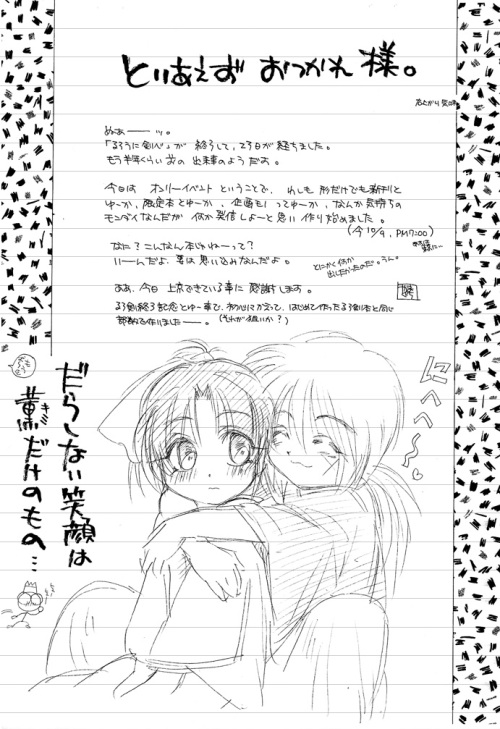 とりあえず おつかれ 様。
ぬぁーーーッ。
「るろうに剣心」が 終ろして、23日が経ちました。
もう半年くらい前の 出来事のようだよ。
今日は オンリーイベント ということで、わしも 形だけでも新刊と
ゆーか、限定本とゆーか、企画モノってゆーか、なんか気持ちの
モンダイなんだが 何か発信しよーと思い 作り始めました。
(今 10/9、PM9:00)
なに?こんなん本じゃねーって?
いーんだよ、要は思い込みなんだよ。
とにかく何か
出したかったのだ。うん。
ああ、今日 上京できている事に 感謝します。
るろ剣終了記念とゆー事で、初心にかえって、はじめて作ったるろ剣本と同じ
(それが狙いか?)
にへへ〜
だらしない笑顔は
薫だけのもの…
キミ